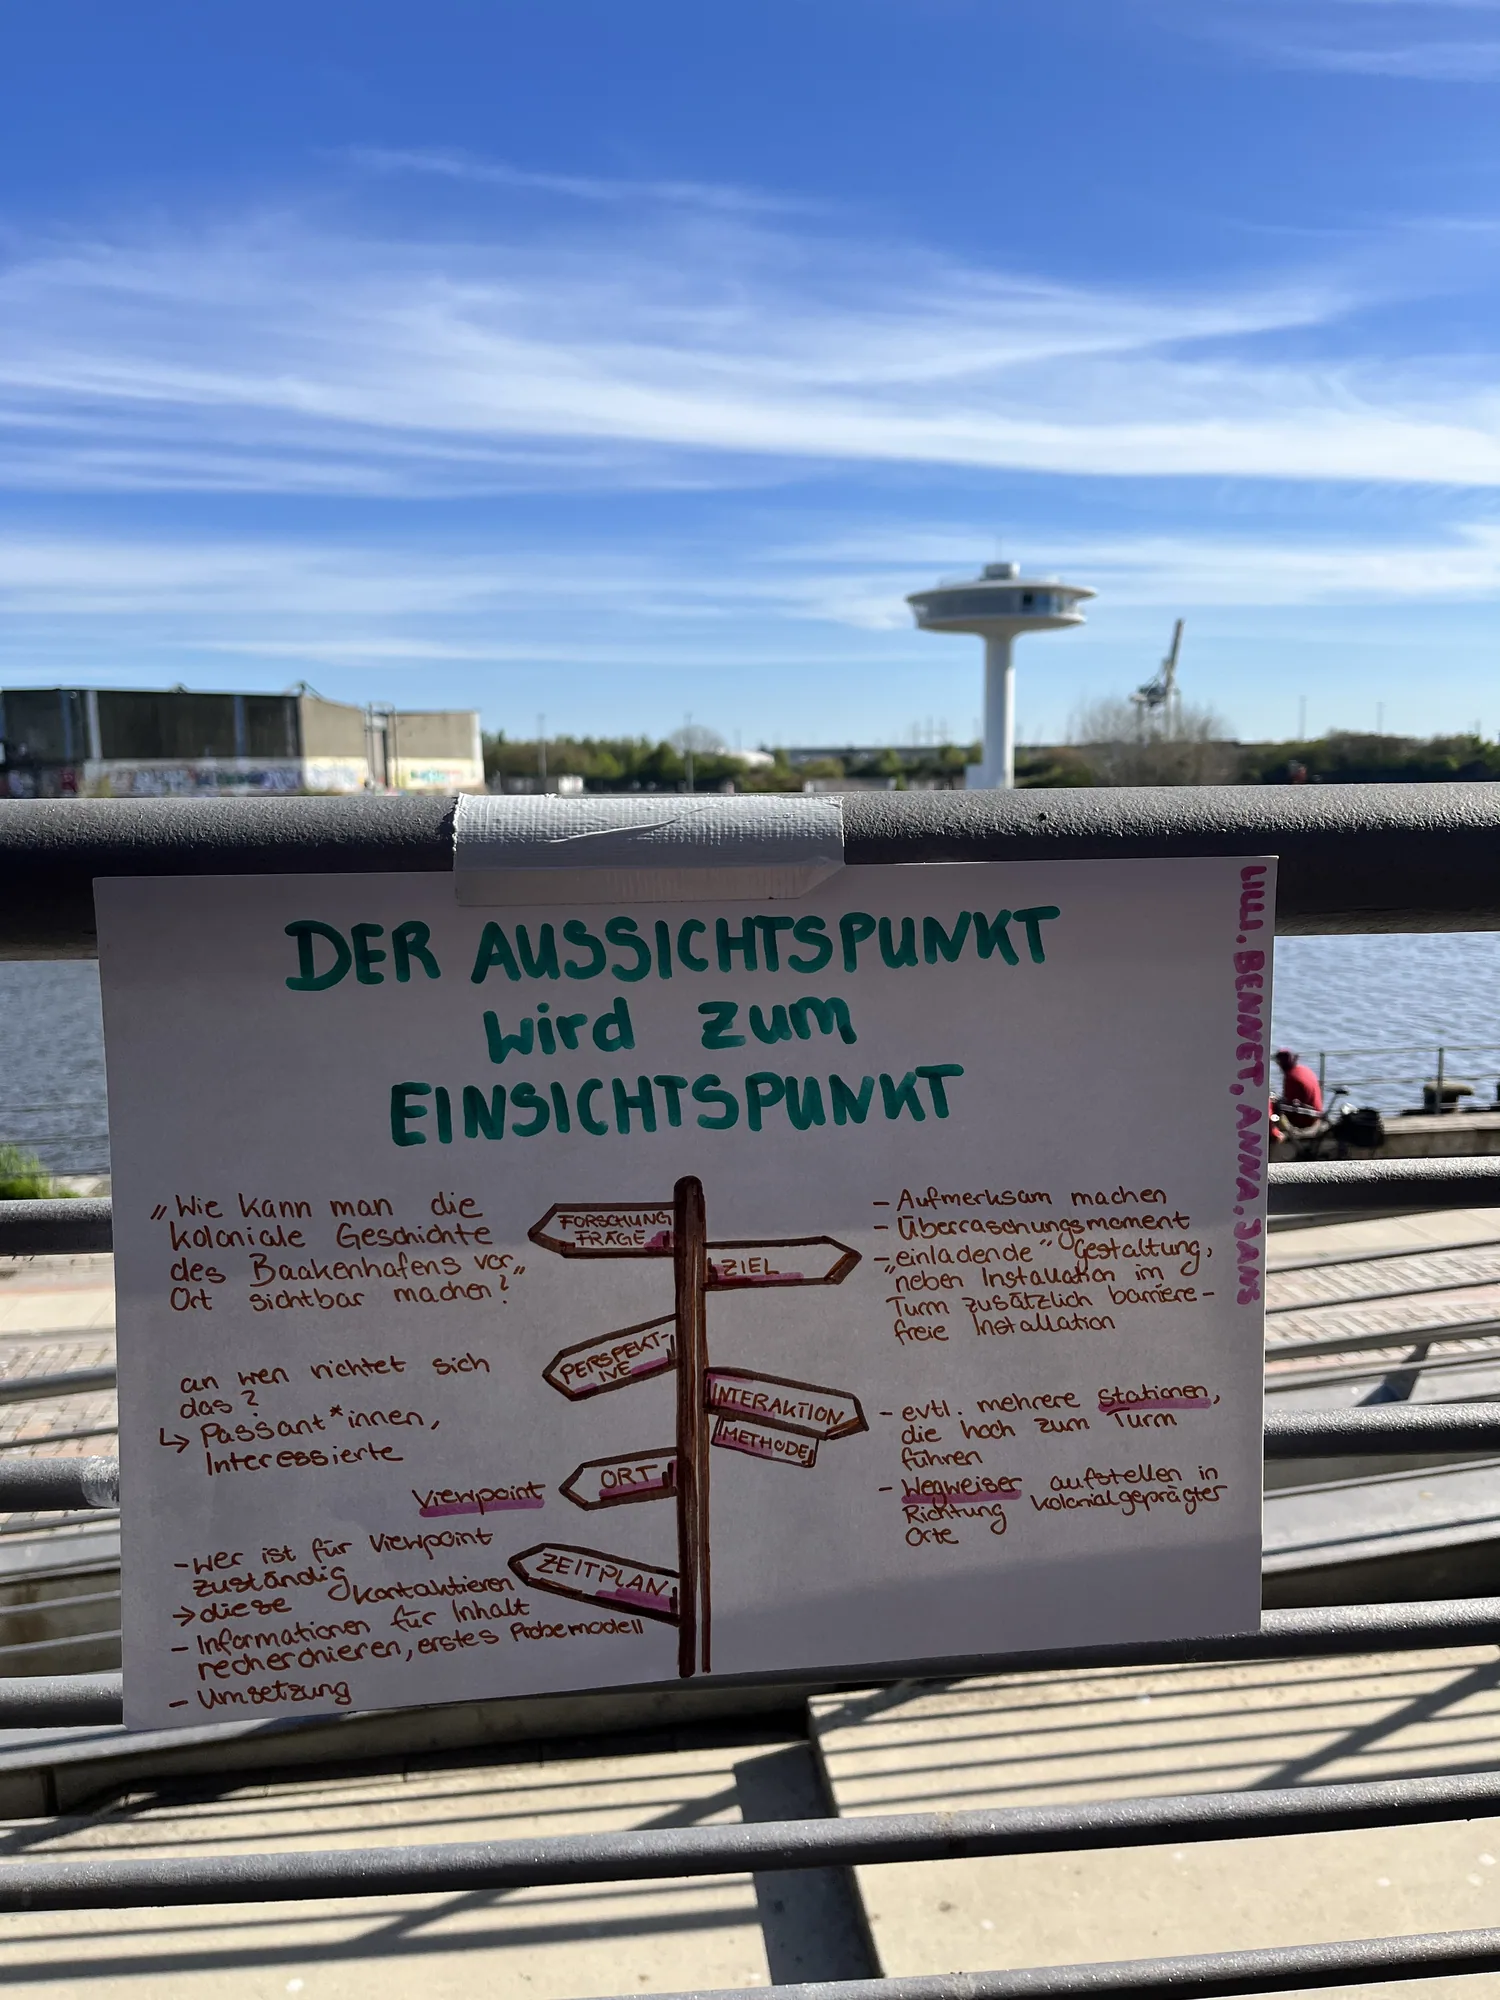 DER AUSSICHTSPUNKT
wird zum
EINSICHTSPUNKT
LILLI, BENNET, ANNA, JANS
FORSCHUNG
FRAGE
„Wie kann man die
koloniale Geschichte
des Baakenhafens vor„
Ort sichtbar machen?
ZIEL
- Aufmerksam machen
- Überraschungsmoment
-„einladende" Gestaltung,
neben Installation im
Turm zusätzlich barriere-
freie Installation
PERSPEKT-
IVE
an wen richtet sich
das?
↳ Passant*innen,
Interessierte
INTERAKTION
METHODE
- evtl. mehrere Stationen,
die hoch zum Turm
führen
- Wegweiser aufstellen in
Richtung kolonialgeprägter
Orte
ORT
Viewpoint
ZEITPLAN
- wer ist für Viewpoint
zuständig
→ diese kontaktieren
- Informationen für Inhalt
recherchieren, erstes Probemodell
- Umsetzung